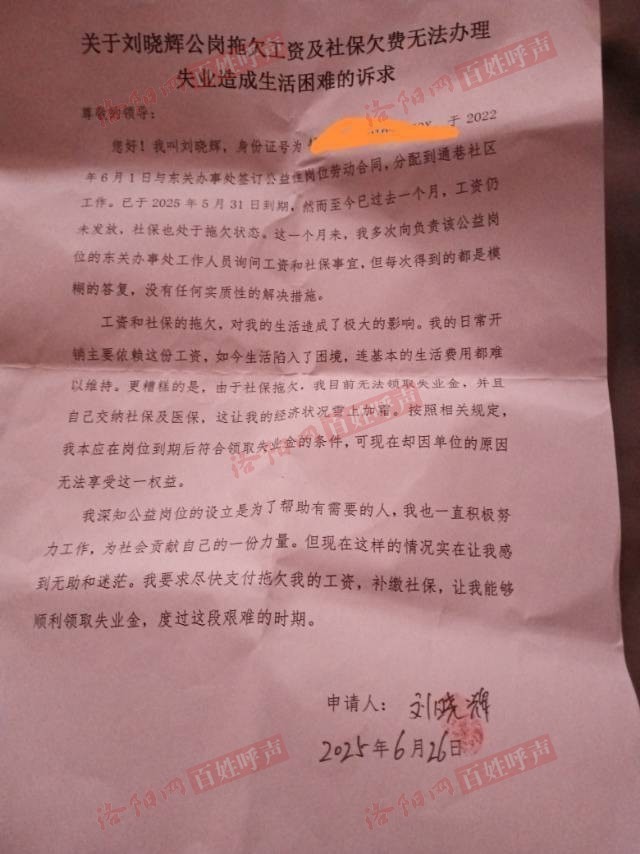 关于刘晓辉公岗拖欠工资及社保欠费无法办理
失业造成生活困难的诉求
尊敬的领导：
您好！我叫刘晓辉，身份证号为 于 2022
年 6 月 1 日与东关办事处签订公益性岗位劳动合同，分配到通巷社区
工作。已于 2025 年 5 月 31 日到期，然而至今已过去一个月，工资仍
未发放，社保也处于拖欠状态。这一个月来，我多次向负责该公益岗
位的东关办事处工作人员询问工资和社保事宜，但每次得到的都是模
糊的答复，没有任何实质性的解决措施。
工资和社保的拖欠，对我的生活造成了极大的影响。我的日常开
销主要依赖这份工资，如今生活陷入了困境，连基本的生活费用都难
以维持。更糟糕的是，由于社保拖欠，我目前无法领取失业金，并且
自己交纳社保及医保，这让我的经济状况雪上加霜。按照相关规定，
我本应在岗位到期后符合领取失业金的条件，可现在却因单位的原因
无法享受这一权益。
我深知公益岗位的设立是为了帮助有需要的人，我也一直积极努
力工作，为社会贡献自己的一份力量。但现在这样的情况实在让我感
到无助和迷茫。我要求尽快支付拖欠我的工资，补缴社保，让我能够
顺利领取失业金，度过这段艰难的时期。
申请人：刘晓辉
2025年6月26日
洛阳网 百姓呼声
洛阳网 百姓呼声
洛阳网 百姓呼声
洛阳网 百姓呼声
洛阳网 百姓呼声